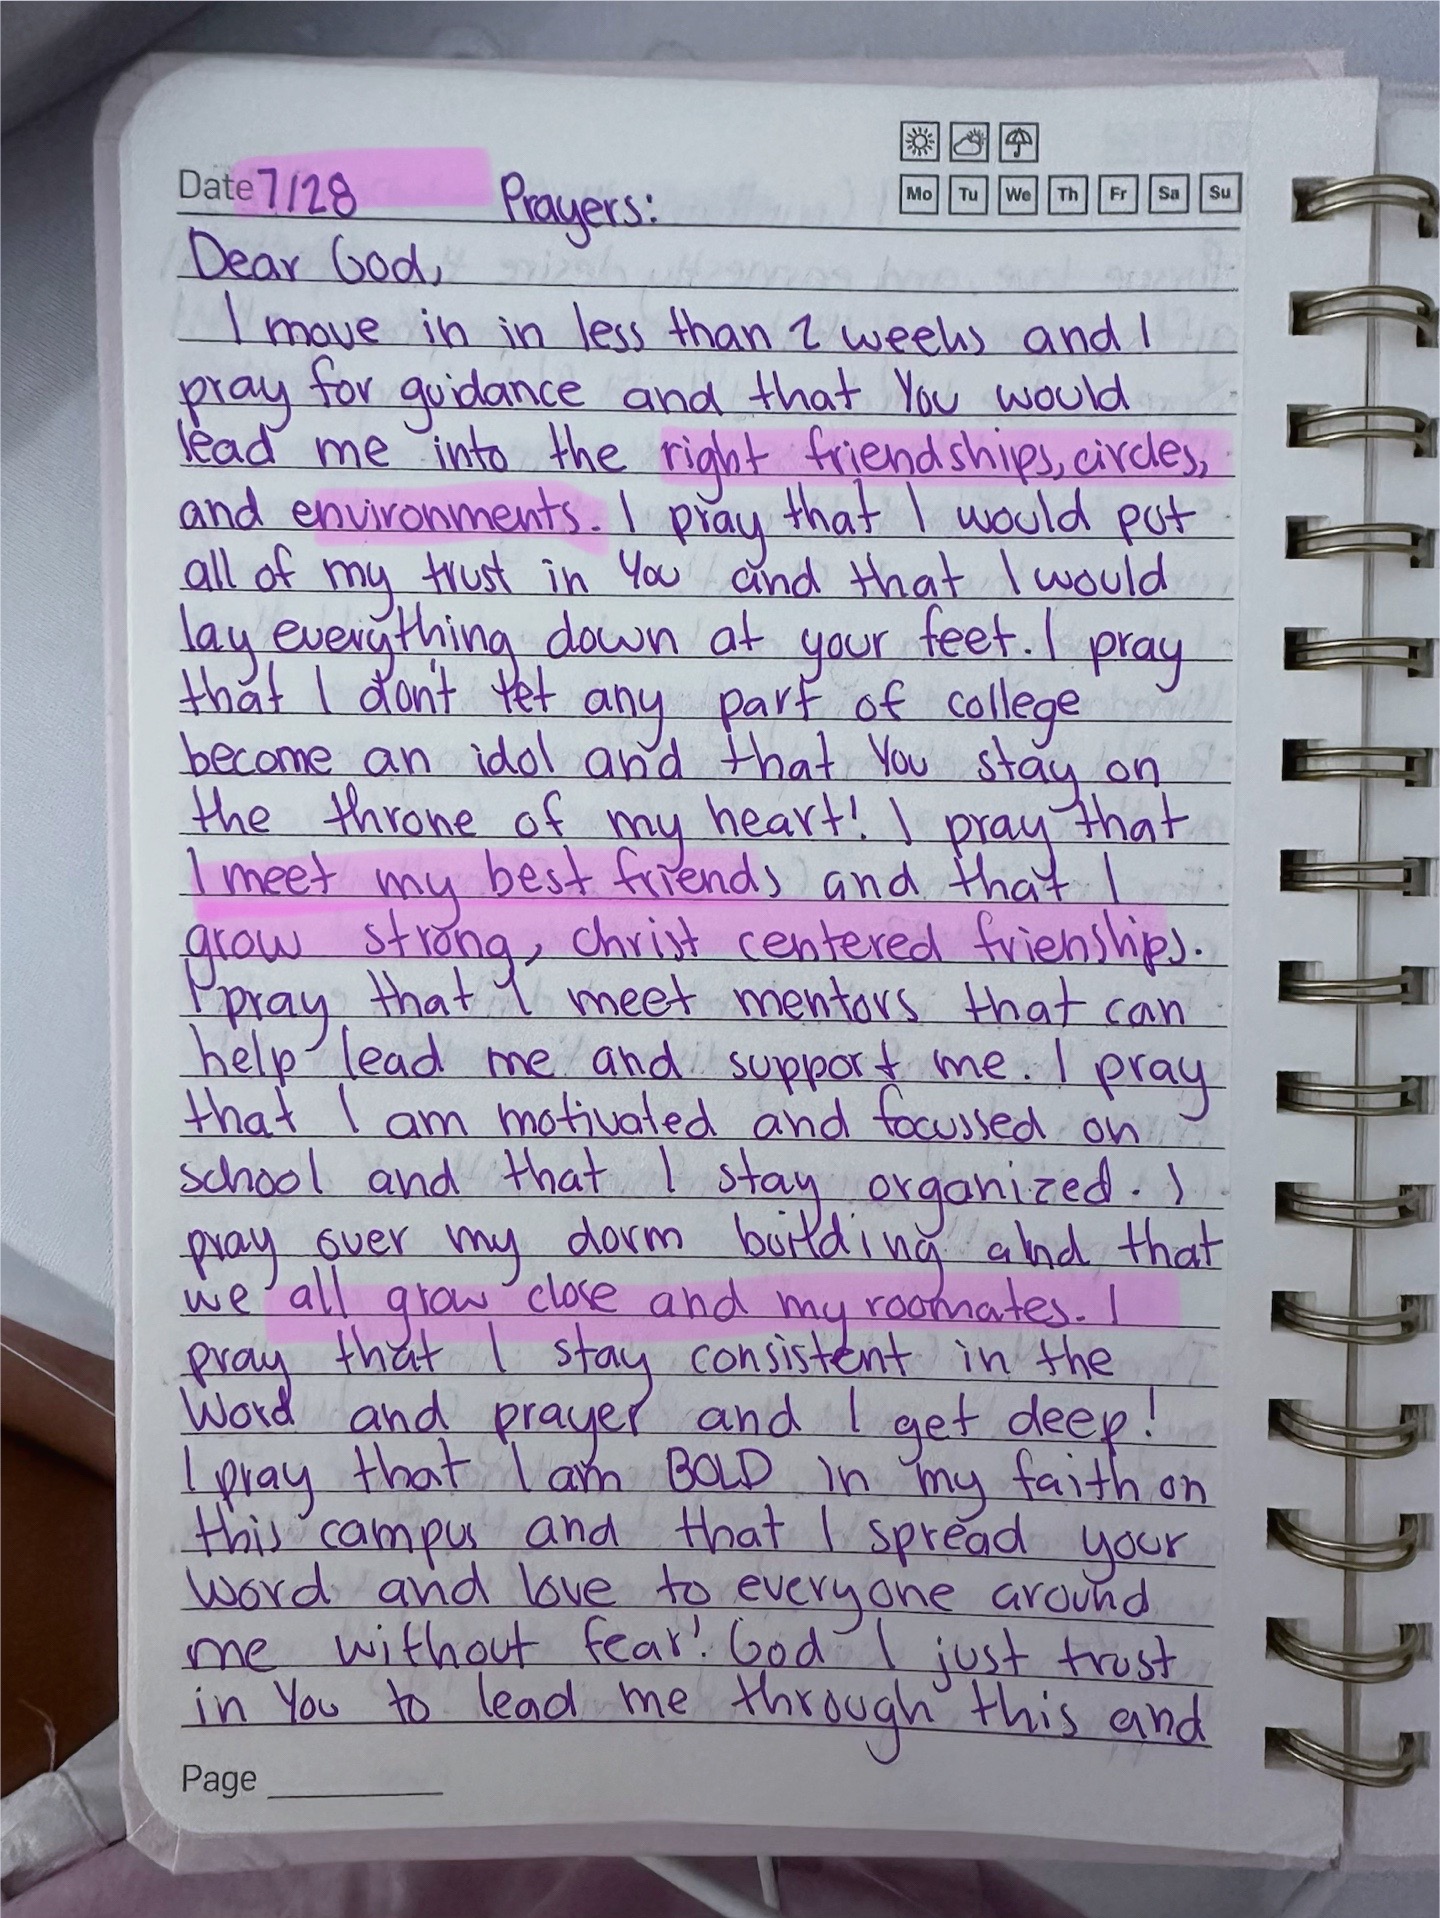 Date 7/28 Prayers:
Mo Tu We Th Fr Sa Su
Dear God,
I move in in less than 2 weeks and I
pray for guidance and that You would
lead me into the right friendships, circles,
and environments. I pray that I would put
all of my trust in You and that I would
lay everything down at your feet. I pray
that I don't let any part of college
become an idol and that You stay on
the throne of my heart! I pray that
I meet my best friends and that I
grow strong, christ centered frienships.
I pray that I meet mentors that can
help lead me and support me. I pray
that I am motivated and focussed on
school and that I stay organized. I
pray over my dorm building and that
we all grow close and my roomates. I
pray that I stay consistent in the
Word and prayer and I get deep!
I pray that I am BOLD in my faith on
this campus and that I spread your
word and love to everyone around
me without fear! God I just trust
in You to lead me through this and
Page